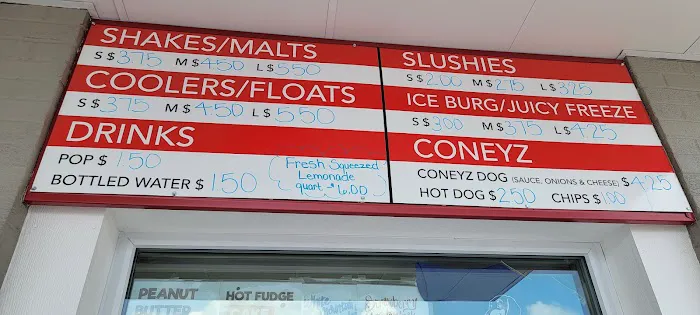 SHAKES/MALTS
S $ 3.75 M $ 4.50 L $ 5.50
COOLERS/FLOATS
S $ 3.75 M $ 4.50 L $ 5.50
DRINKS
POP $ 1.50
BOTTLED WATER $ 1.50
Fresh Squeezed
Lemonade
quart - $ 6.00
SLUSHIES
S $ 2.00 M $ 2.75 L $ 3.25
ICE BURG/JUICY FREEZE
S $ 3.00 M $ 3.75 L $ 4.25
CONEYZ
CONEYZ DOG (SAUCE, ONIONS & CHEESE) $ 4.25
HOT DOG $ 2.50 CHIPS $ 1.00
PEANUT
BUTTER
HOT FUDGE